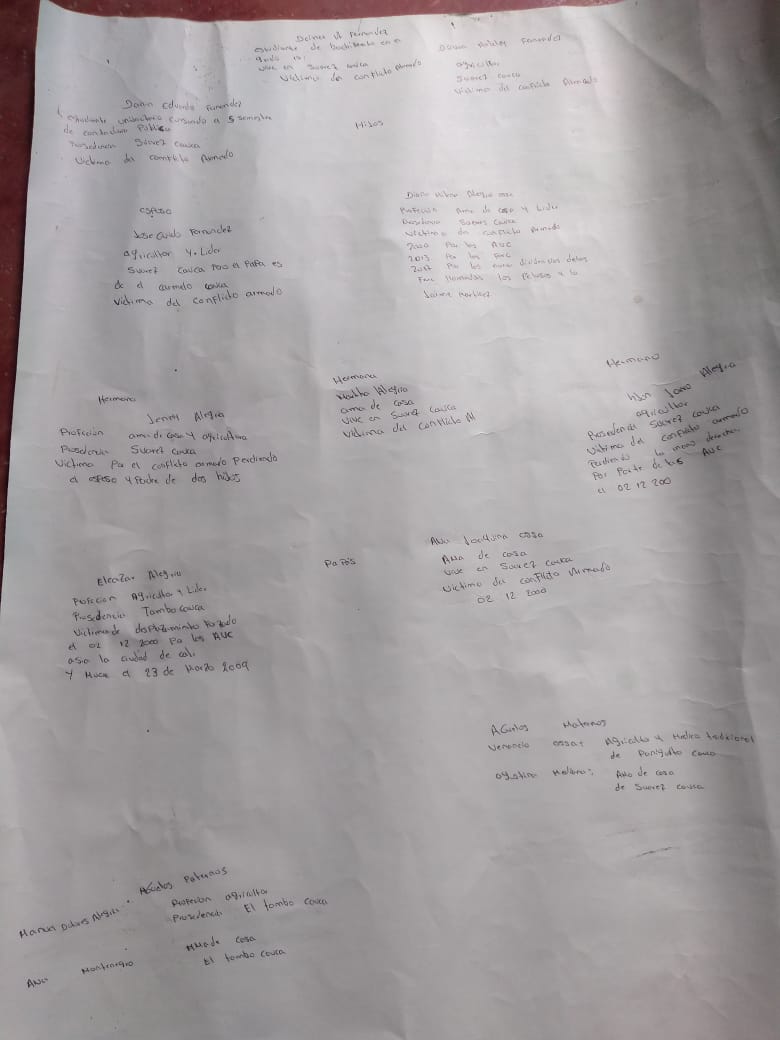 Fernandez
estudiante de bachillerato en el
grado 10:
vive en Suarez cauca
Victima del conflicto Armado
Fernandez
agricultor
Suarez cauca
Victima del conflicto Armado
Eduardo Fernandez
estudiante cursando a 5 semestre
de contaduria Publica
Suarez Cauca
Victima del conflicto Armado
Hijos
esposo
Jose Fernandez
agricultor y Lider
Suarez cauca Pero el Papa es
de el carmelo cauca
Victima del conflicto armado
Alegria ossa
Profecion Ama de casa y Lider
Suarez Cauca
Victima del conflicto Armado
2000 Por las AUC
2013 Por las FARC
2017 Por los
Farc los Pelusos y la
Jaime Martinez
Hermana
Alegria
Profecion ama de casa y agricultora
Suarez cauca
Victima Por el conflicto armado Perdiendo
el esposo y Padre de dos hijos
Hermana
Martha Alegria
ama de casa
vive en Suarez cauca
Victima del conflicto Al
Hermano
Jairo Alegria
agricultor
Prosedencia Suarez cauca
Victima del conflicto armado
Perdiendo la mano derecha
Por Parte de las AUC
el 02 12 200
Eleazar Alegria
Profecion Agricultor y Lider
Prosedencia Tambo Cauca
Victima de desplazamiento forzado
el 02 12 2000 Por las AUC
asia la ciudad de cali
Y Muere el 23 de Marzo 2009
Papás
Ana Joaquina ossa
Ama de casa
vive en Suarez cauca
Victima del conflicto Armado
02 12 2000
Aguelos Maternos
Venancio ossa: Agricultor y Medico tradicional
de cauca
: Ama de casa
de Suarez cauca
Aguelos Paternos
Manuel Dolores Alegria: Profecion agricultor
Prosedencia El tambo cauca
Ana Montenegro Ama de casa
El tambo cauca